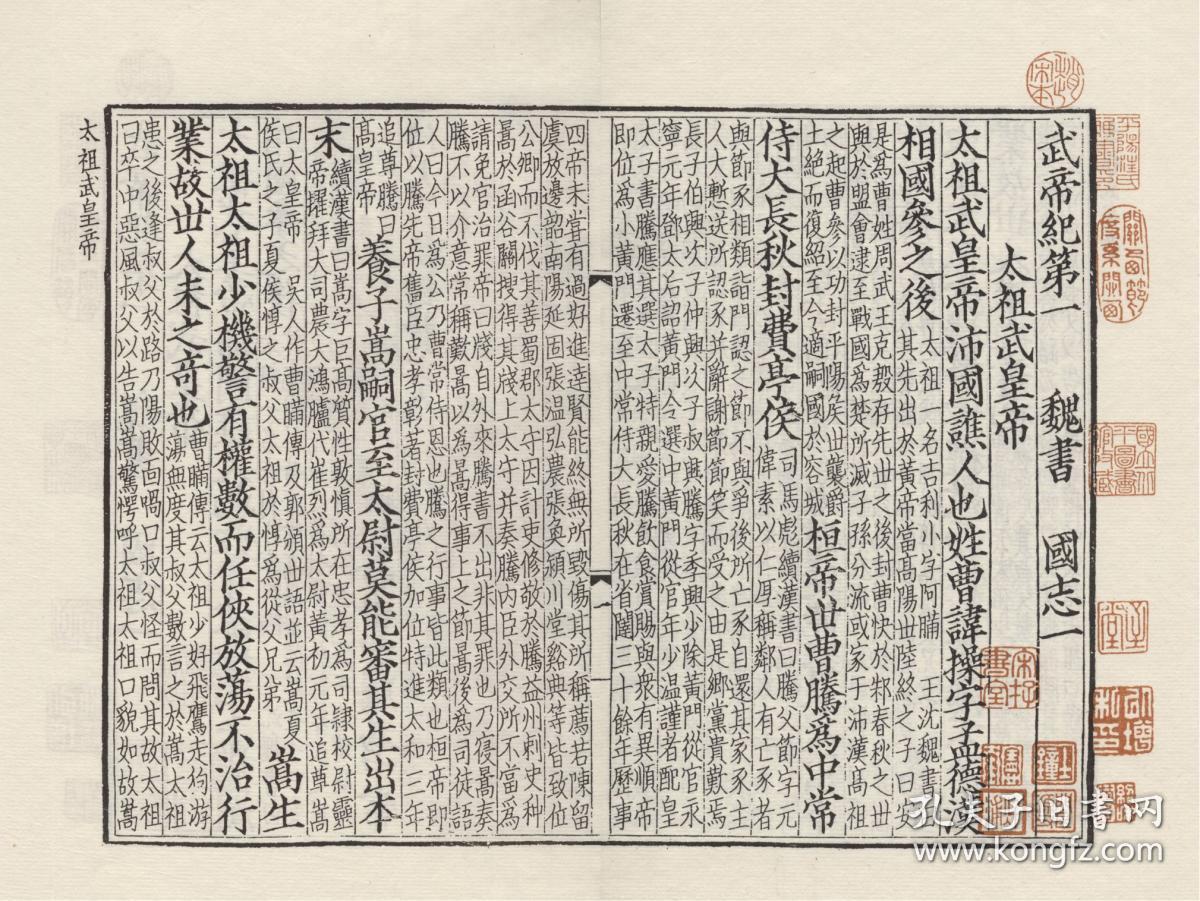 武帝紀第一 魏書 國志一
太祖武皇帝
太祖武皇帝沛國譙人也姓曹諱操字孟德漢
相國參之後
太祖一名吉利小字阿瞞 王沈魏書
其先出於黃帝當高陽世陸終之子曰安
是為曹姓周武王克殷存先世之後封曹俠於邾春秋之世
與於盟會逮至戰國為楚所滅子孫分流或家于沛漢高祖
之起曹參以功封平陽侯世襲爵
土絕而復紹至今適嗣國於容城
桓帝世曹騰為中常
侍大長秋封費亭侯
司馬彪續漢書曰騰父節字元
偉素以仁厚稱鄰人有亡豕者
與節豕相類詣門認之節不與爭後所亡豕自還其家豕主
人大慙送所認豕并辭謝節節笑而受之由是鄉黨貴歎焉
長子伯興次子仲興次子叔興騰字季興少除黃門從官永
寧元年鄧太后詔黃門令選中黃門從官年少溫謹者配皇
太子書騰應其選太子特親愛騰飲食賞賜與衆有異順帝
即位為小黃門遷至中常侍大長秋在省闥三十餘年歷事
四帝未甞有過好進達賢能終無所毀傷其所稱薦若陳留
虞放邊韶南陽延固張溫弘農張奐潁川堂谿典等皆致位
公卿而不伐其善蜀郡太守因計吏修敬於騰益州刺史种
暠於函谷關搜得其牋上太守并奏騰內臣外交所不當為
請免官治罪帝曰牋自外來騰書不出非其罪也乃寑暠奏
騰不以介意常稱歎暠以為暠得事上之節暠後為司徒語
人曰今日為公乃曹常侍恩也騰之行事皆此類也桓帝即
位以騰先帝舊臣忠孝彰著封費亭侯加位特進太和三年
追尊騰曰
高皇帝
養子嵩嗣官至太尉莫能審其生出本
末
續漢書曰嵩字巨高質性敦慎所在忠孝為司隷校尉靈
帝擢拜大司農大鴻臚代崔烈為太尉黃初元年追尊嵩
曰太皇帝 吳人作曹瞞傳及郭頒世語並云嵩夏
侯氏之子夏侯惇之叔父太祖於惇為從父兄弟
嵩生
太祖太祖少機警有權數而任俠放蕩不治行
業故世人未之奇也
曹瞞傳云太祖少好飛鷹走狗游
蕩無度其叔父數言之於嵩太祖
患之後逢叔父於路乃陽敗面喎口叔父怪而問其故太祖
曰卒中惡風叔父以告嵩嵩驚愕呼太祖太祖口貌如故嵩
太祖武皇帝
孔夫子旧书网
www.kongfz.com